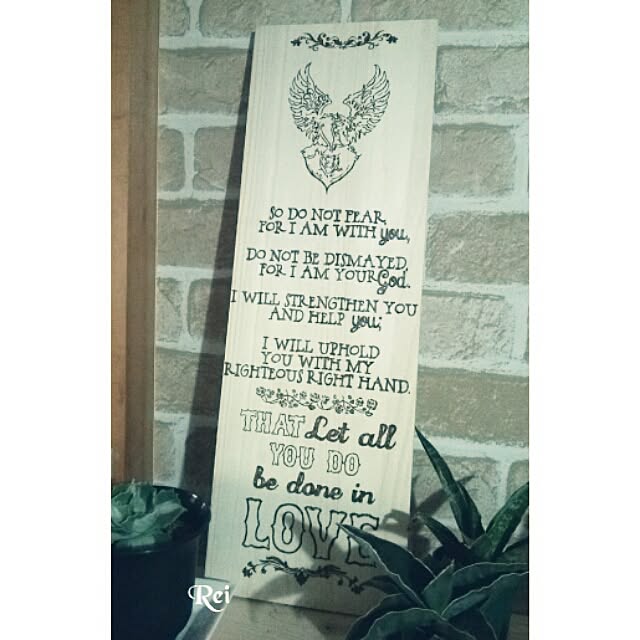 SO DO NOT FEAR,
FOR I AM WITH you,
DO NOT BE DISMAYED,
FOR I AM YOUR God.
I WILL STRENGTHEN YOU
AND HELP you;
I WILL UPHOLD
YOU WITH MY
RIGHTEOUS RIGHT HAND.
THAT Let all
YOU DO
be done in
LOVE
Rei